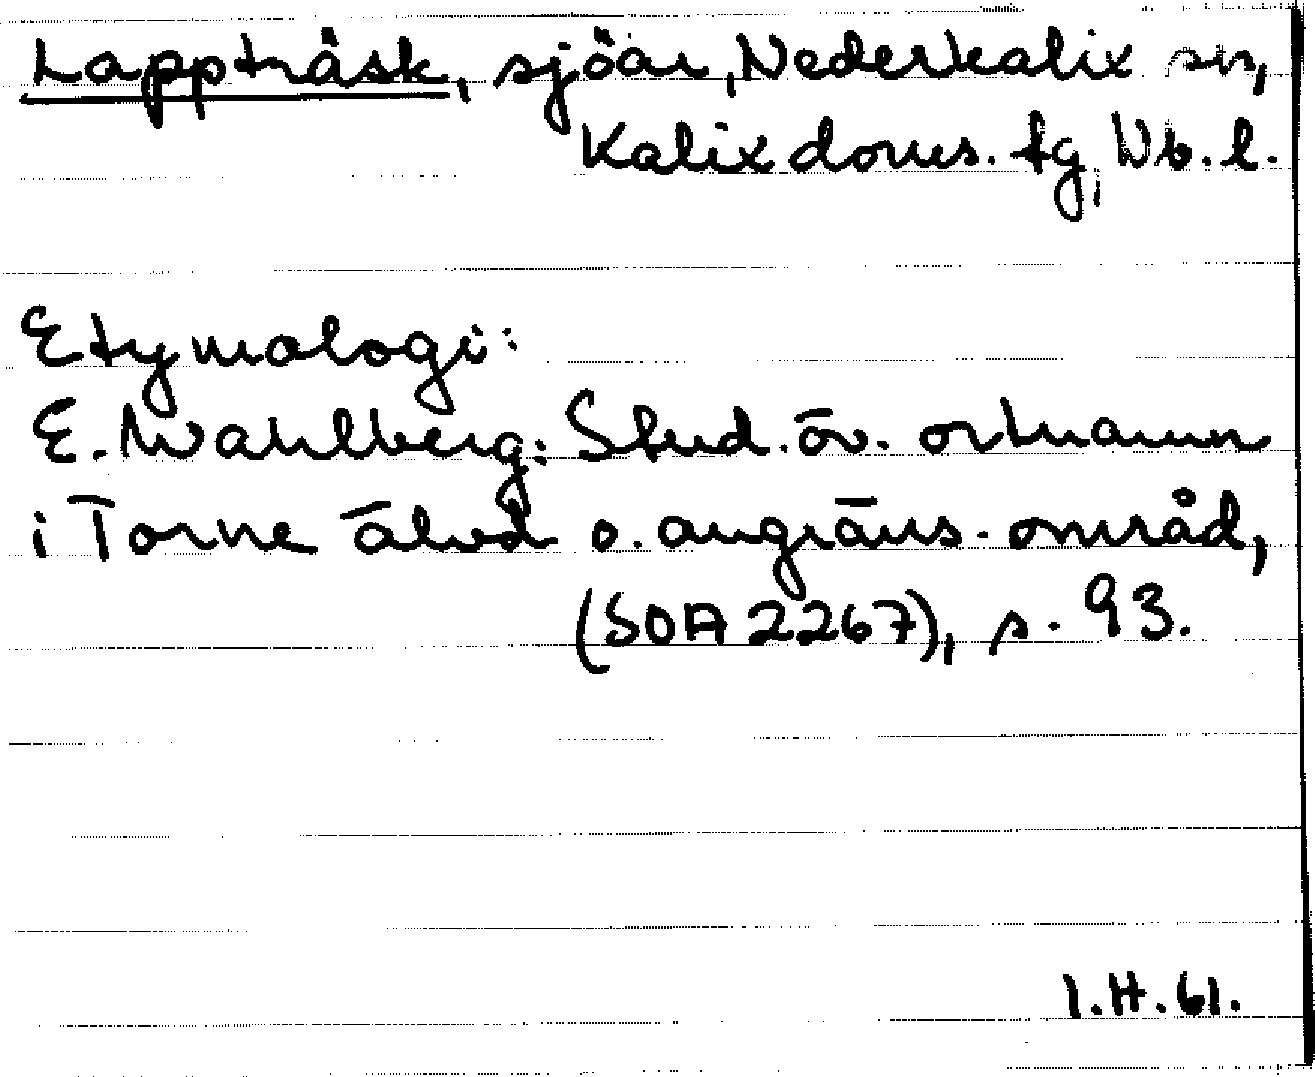 Lappträsk, sjöar, Nederkalix sn,
Kalix doms. tg, Nb. l.
Etymologi:
E. Wahlberg: Stud. öv. ortnamn
i Torne älvd o. angräns. område,
(SOA 2267), s. 93.
I.H. 61.